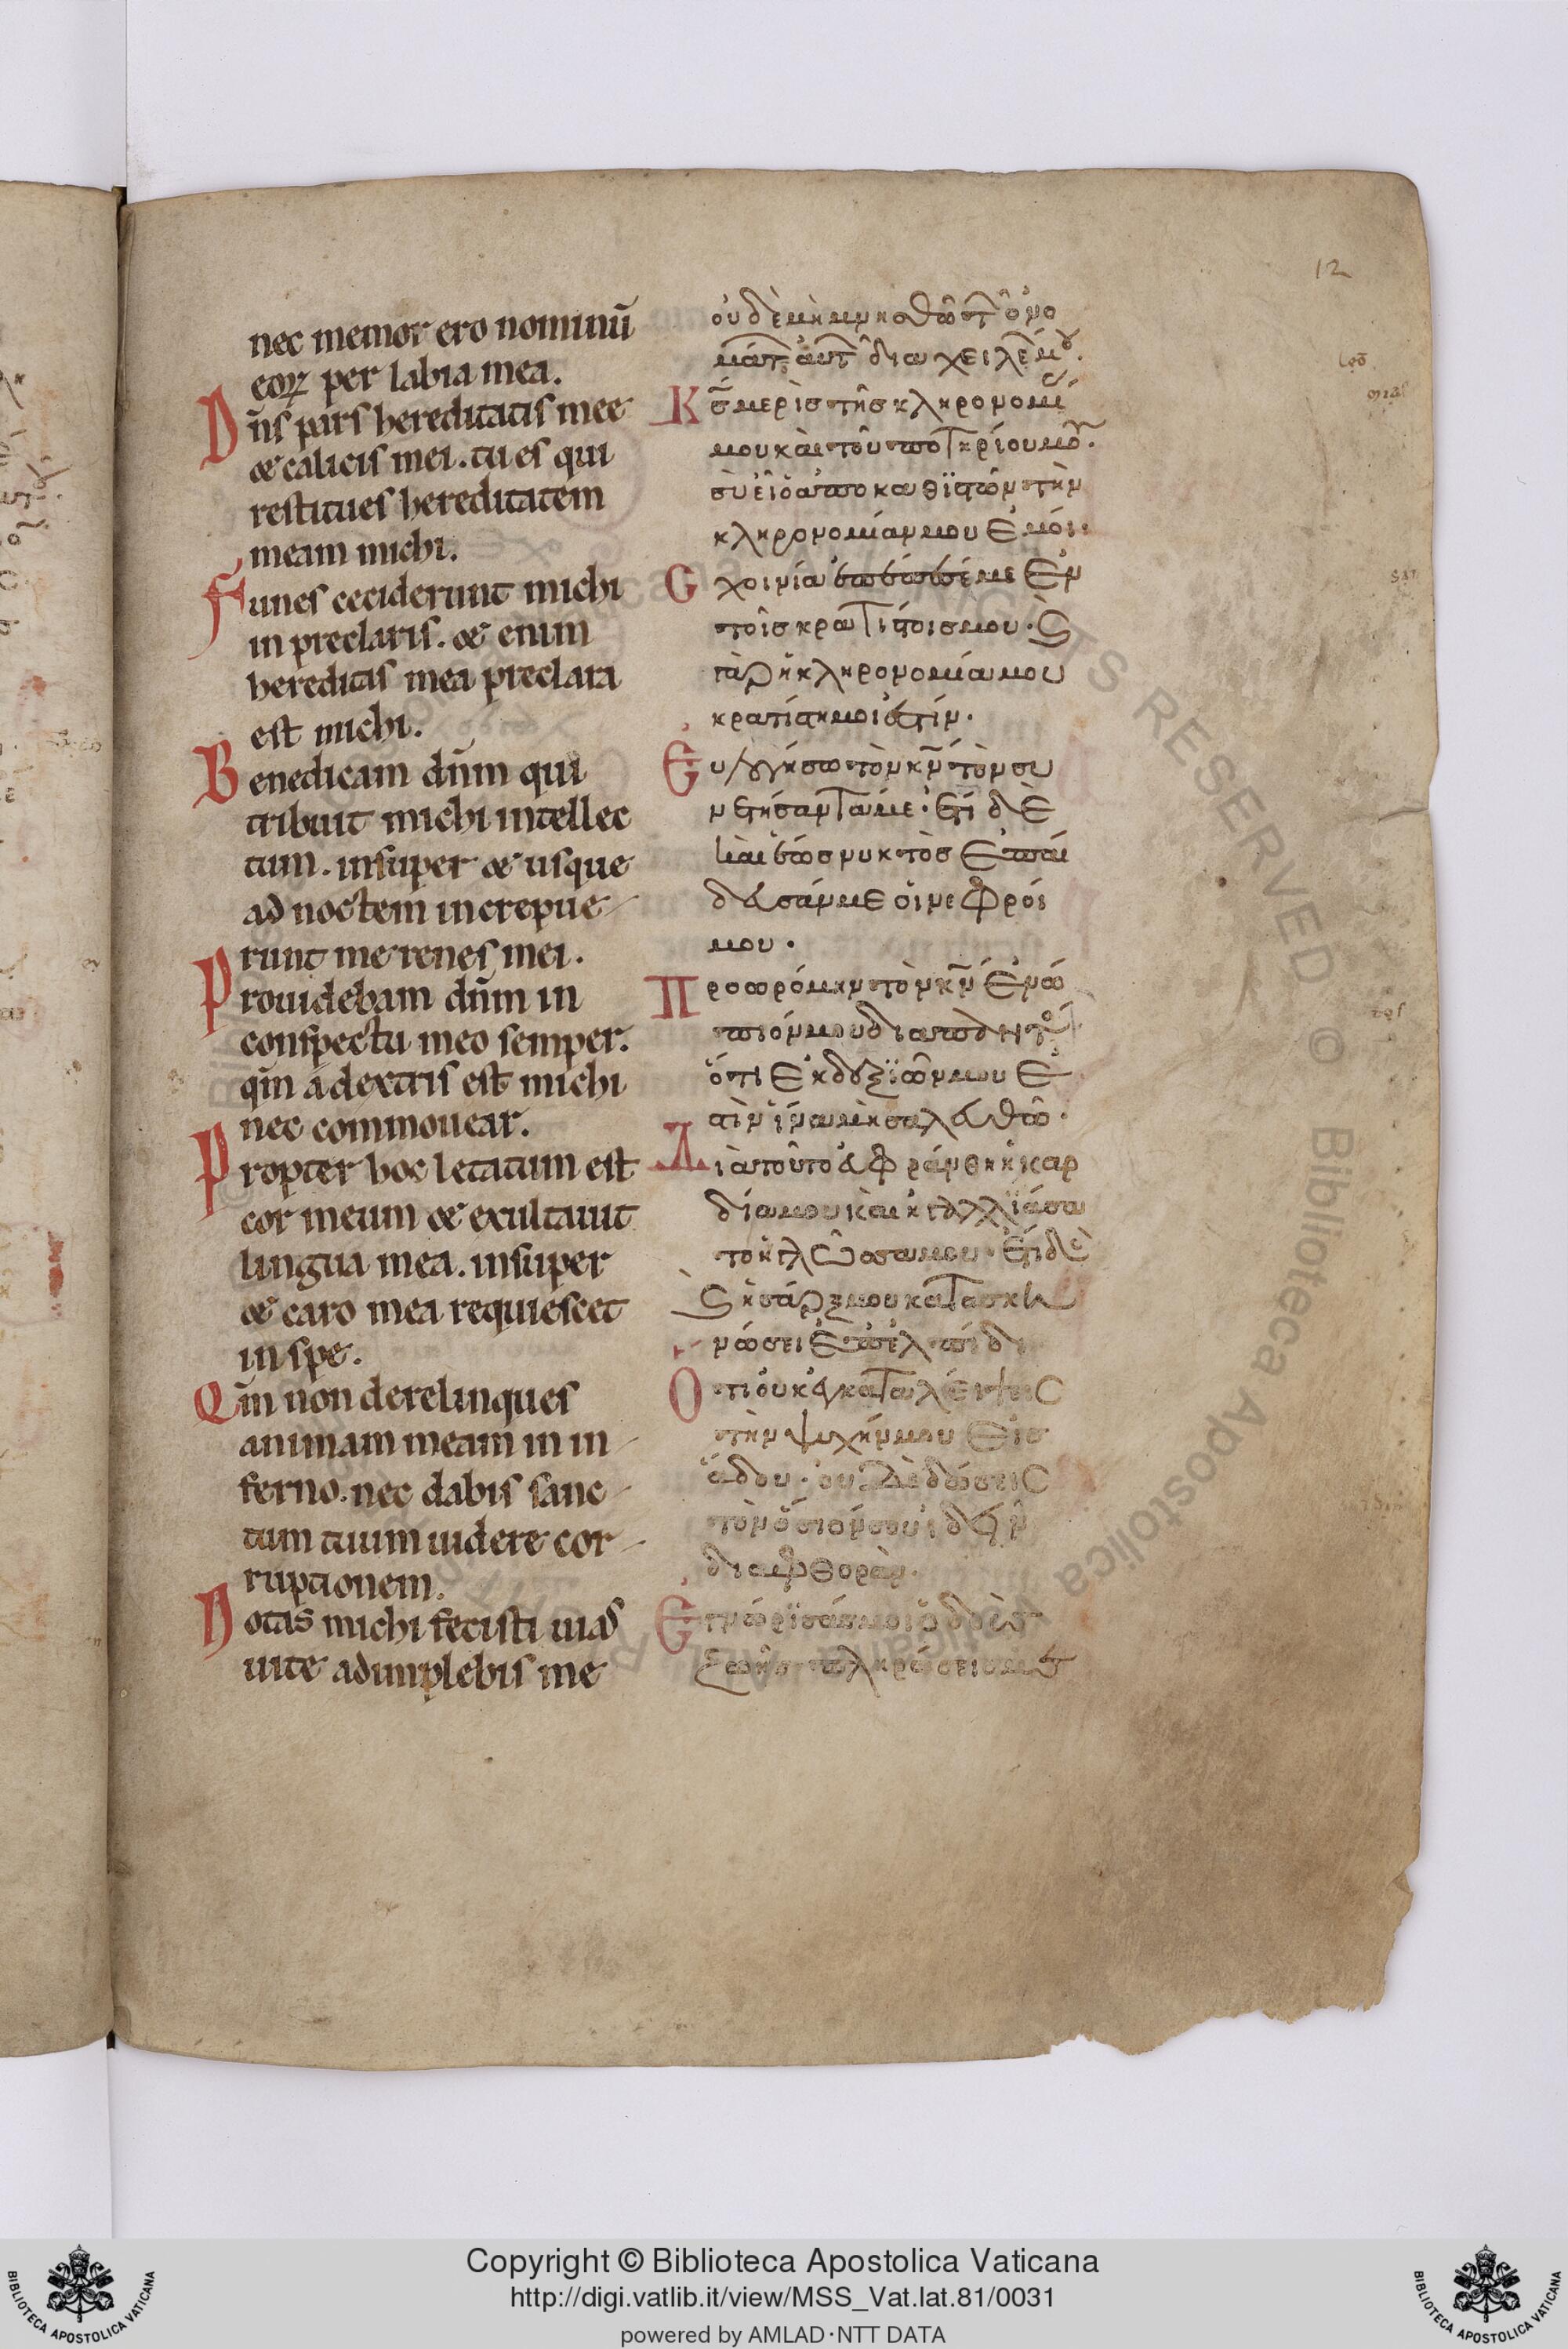 12
nec memor ero nominū
eoꝝ per labia mea.
Dn̄s pars hereditatis mee
& calicis mei. tu es qui
restitues hereditatem
meam michi.
Funes ceciderunt michi
in preclaris. & enim
hereditas mea preclara
est michi.
Benedicam dn̄m qui
tribuit michi intellec
tum. insuper & usque
ad noctem increpue-
runt me renes mei.
Prouidebam dn̄m in
conspectu meo semper.
qm̄ a dextris est michi
nec commouear.
Propter hoc letatum est
cor meum & exultauit
lingua mea. insuper
& caro mea requiescet
in spe.
Qm̄ non derelinques
animam meam in in-
ferno. nec dabis sanc-
tum tuum uidere cor-
ruptionem.
Notas michi fecisti uias
uite adimplebis me
Κσ̄ μερὶσ τῆσ κληρονομί
μου καὶ τοῦ ποτηρίου μου.
σὺ εἶ ὁ ἀποκαθϊστῶν τὴν
κληρονομίαν μου ἐμόι.
χοινία ἐν
τοῖσ κρατίστοισ μου. ϗ
γὰρ ἡ κληρονομία μου
κρατίστη μοι ἐστίν.
τὸν κν̄ τὸν συ
νετήσαντα με. ἔτι δὲ
ϗαὶ ἕωσ νυκτὸσ ἐπαί
δευσάν με ὁι νεφρόι
μου.
Προορόμην τὸν κν̄ ἐνώ
πιόν μου διαπαντ
ὅτι ἐκ δεξϊῶν μου ἐ
στὶν ἵνα μὴ σαλευθῶ.
Διὰ τοῦτο ἐυφράνθη ἡ καρ
δία μου καὶ ἠγαλλϊάσα
το ἡ γλῶσσα μου. ἔτι δὲ
ϗ ἡ σάρξ μου κατασκη
νώσει ἐπ ἐλπίδι
Ὅτι ὀυκ ἐγκαταλέιψεισ
τὴν ψυχήν μου ἐισ
ἅδου. ὀυδὲ δώσεισ
τὸν ὅσιόν σου ἰδεῖν
διαφθοράν.
Ἐγνώρϊσάσ μοι ὁδοὺσ
ζωῆσ πληρώσεισ με
Copyright © Biblioteca Apostolica Vaticana
http://digi.vatlib.it/view/MSS_Vat.lat.81/0031
powered by AMLAD·NTT DATA
BIBLIOTECA APOSTOLICA VATICANA
BIBLIOTECA APOSTOLICA VATICANA